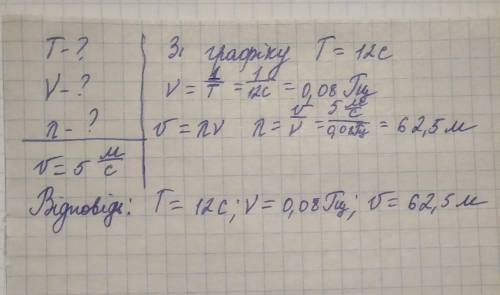 T - ?
ν - ?
л - ?
v = 5 м/с
Зі графіку T = 12с
ν = 1/T = 1/12с = 0,08 Гц
v = лν л = v/ν = 5 м/с / 0,08Гц = 62,5 м
Відповідь: T = 12с; ν = 0,08 Гц; v = 62,5 м